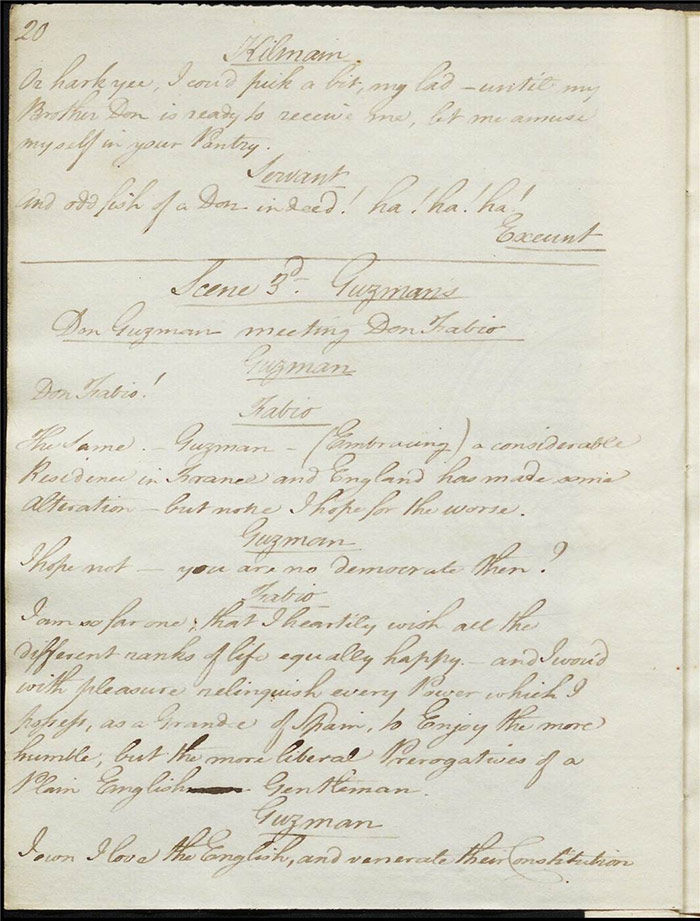 20
Kilmain
Or hark yee, I cou'd pick a bit, my lad – until my
Brother Don is ready to receive me, let me amuse
myself in your Pantry.
Servant
And odd fish of a Don indeed! ha! ha! ha!
Exeunt
Scene 3d. Guzmans
Don Guzman meeting Don Fabio
Guzman
Don Fabio!
Fabio
The Same. – Guzman – (Embracing) a considerable
Residence in France and England has made some
Alteration – but none I hope for the worse.
Guzman
I hope not – you are no democrate then?
Fabio
I am so far one, that I heartily wish all the
different ranks of life equally happy – and I wou'd
with pleasure relinquish every Power which I
possess, as a Grandee of Spain, to Enjoy the more
humble, but the more liberal Prerogatives of a
Plain English Gentleman.
Guzman
I own I love the English, and venerate their Constitution